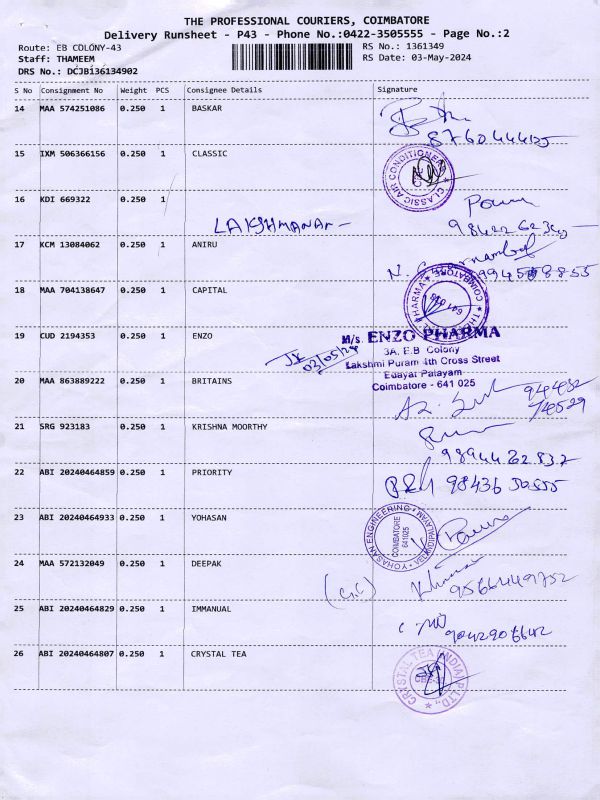 THE PROFESSIONAL COURIERS, COIMBATORE
Delivery Runsheet - P43 - Phone No.:0422-3505555 - Page No.:2
Route: EB COLONY-43
RS No.: 1361349
Staff: THAMEEM
RS Date: 03-May-2024
DRS No.: DCJB136134902
S No Consignment No Weight PCS Consignee Details Signature
14 MAA 574251086 0.250 1 BASKAR
15 IXM 506366156 0.250 1 CLASSIC
CLASSIC AIR CONDITIONERS
16 KDI 669322 1
LAKSHMANAN
17 KCM 13084062 0.250 1 ANIRU
18 MAA 704138647 0.250 1 CAPITAL
COIMBATORE
PHARMA
641 018
19 CUD 2194353 0.250 1 ENZO
M/s. ENZO PHARMA
3A, E.B. Colony
Lakshmi Puram 4th Cross Street
Edayar Palayam
Coimbatore - 641 025
03/05/24
20 MAA 863889222 0.250 1 BRITAINS
21 SRG 923183 0.250 1 KRISHNA MOORTHY
9894462837
22 ABI 20240464859 0.250 1 PRIORITY
23 ABI 20240464933 0.250 1 YOHASAN
YOHASAN ENGINEERING
COIMBATORE
641025
24 MAA 572132049 0.250 1 DEEPAK
9566449752
25 ABI 20240464829 0.250 1 IMMANUAL
26 ABI 20240464807 0.250 1 CRYSTAL TEA
CRYSTAL TEA (INDIA) P LTD.,